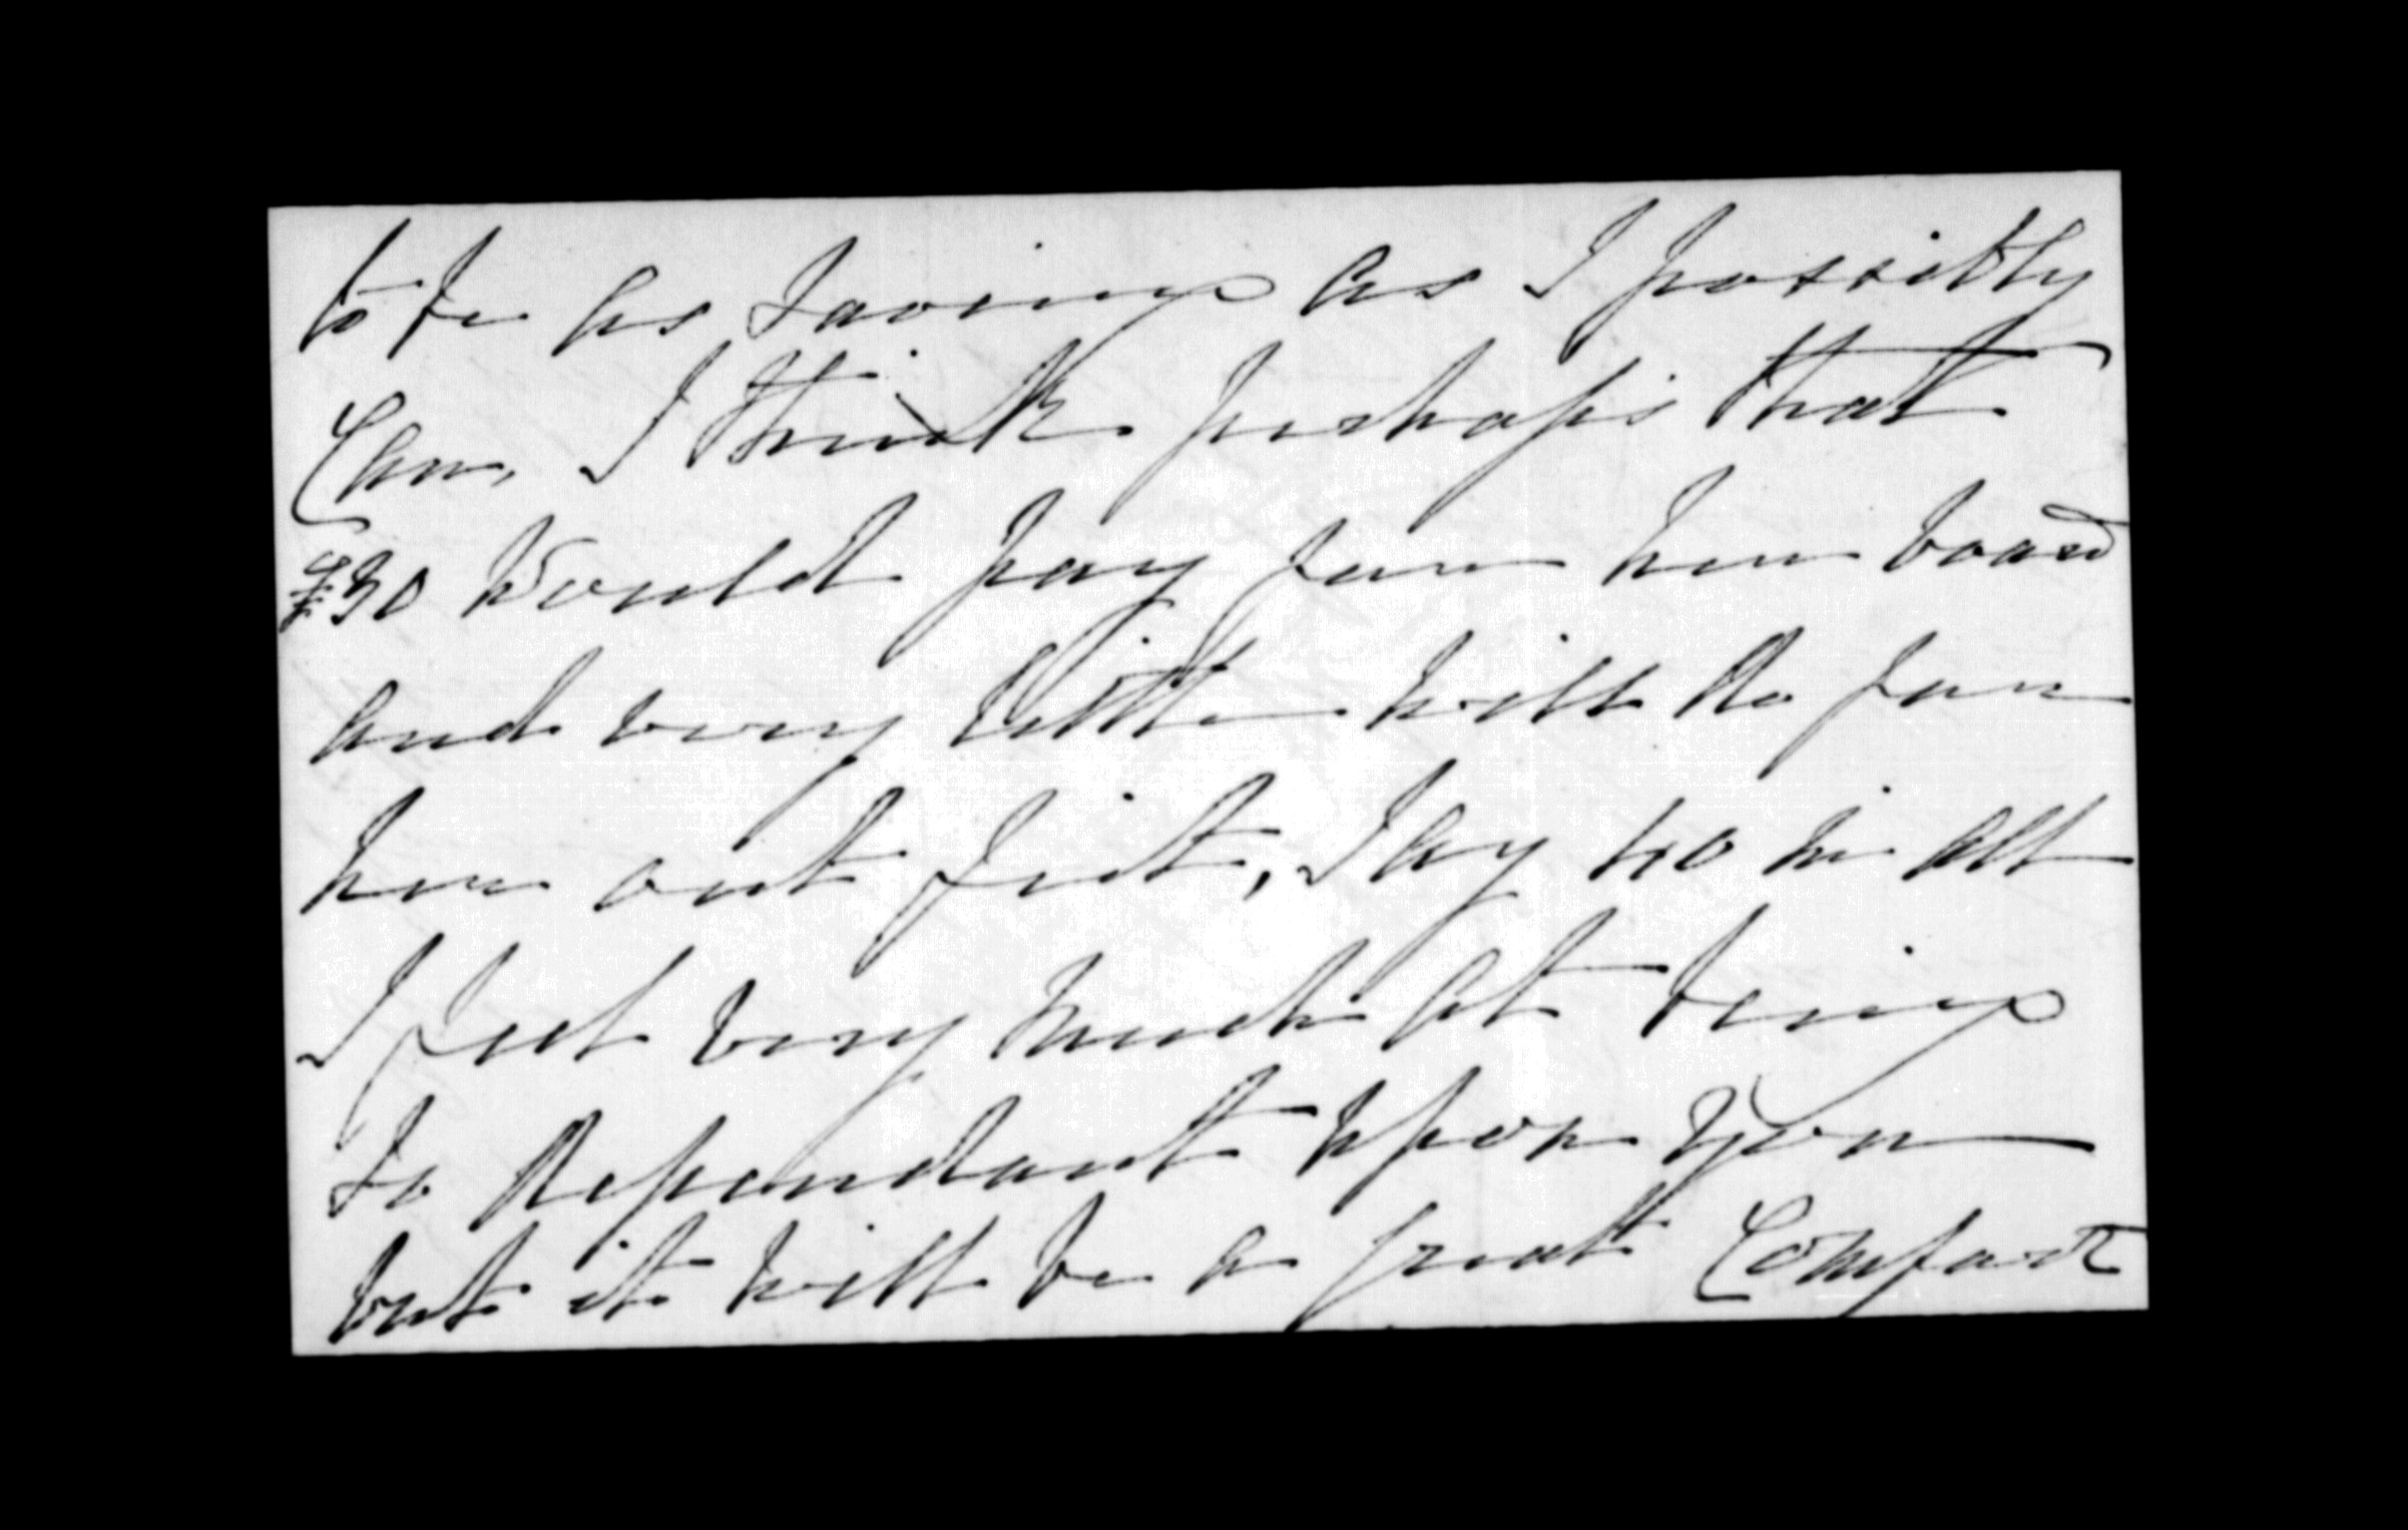 to be as saving as I possibly
Can, I think perhaps that
£30 would pay for her board
and very little will do for
her out fit, Say 40 in all
I feel very much at being
so dependant upon you
but it will be a great Comfort